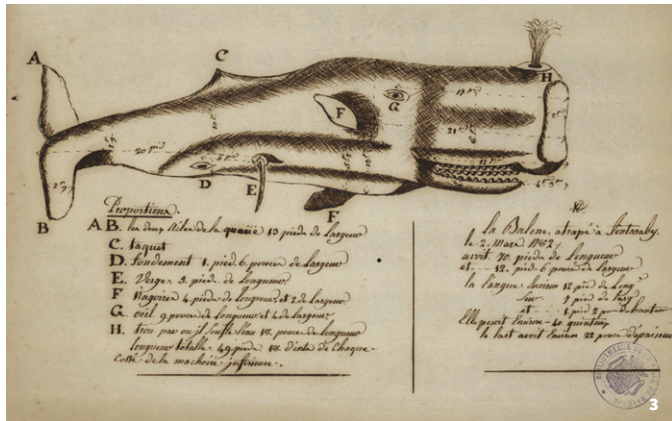 A
B
C
D
E
F
F
G
H
20 pid
Proportions.
A B. les deux Ailes de la queüe 13 pieds de Largeur
C. taquet
D. fondement 1. pied. 6. pouce de Largeur
E. Verge. 3. pieds. de Longueur
F Nagoire 4. pieds de Longueur, et 2. de Largeur
G oeil. 9. pouce de Longueur et 4. de Largeur
H. trou par ou il soufle l'eau 18. pouce de Longueur
Longueur totalle. 49. pieds. 18. dents de Chaque
Coste de la machoire inferieure.
la Balene, atrapé à fontaraby.
la 2. Mars 1782,
avoit 70. pieds de Longueur
et 12. pied. 6 pouce de Largeur
la langue Environ 12 pied de Long
pied de Larg
et 1. pied 2 de haut
Elle pesoit Environ 40 quintaux
le lart avoit Environ 22 pouce d'epaisseur
3